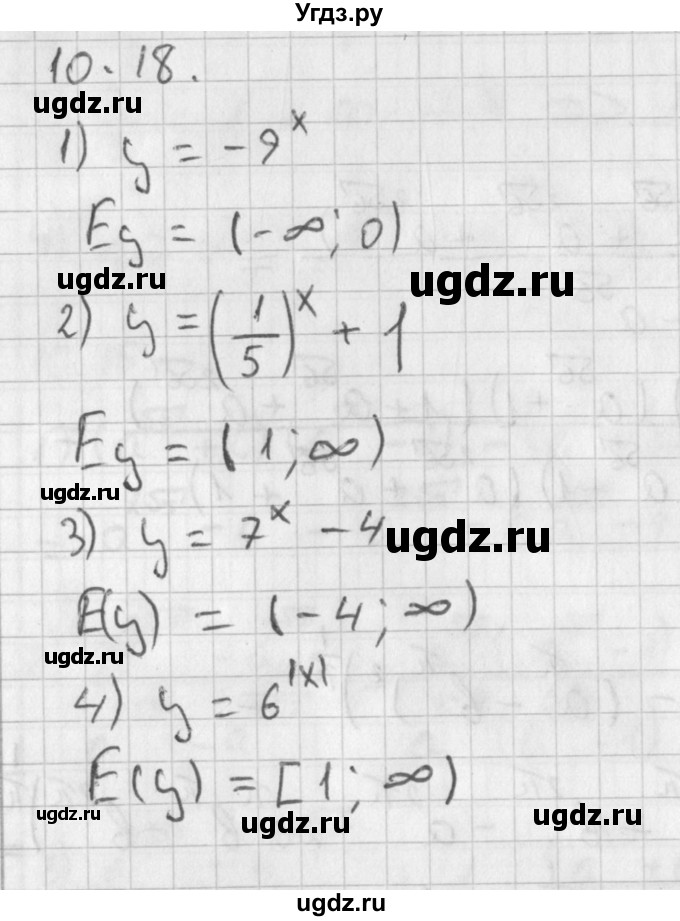 Угдз.ру
10.18.
ugdz.ru
1) y = -9^x
Ey = (-∞; 0)
ugdz.ru
ugdz.ru
2) y = (1/5)^x + 1
Ey = (1; ∞)
ugdz.ru
3) y = 7^x - 4
ugdz.ru
E(y) = (-4; ∞)
ugdz.ru
4) y = 6^|x|
E(y) = [1; ∞)
ugdz.ru
ugdz.ru
ugdz.ru
ugdz.ru